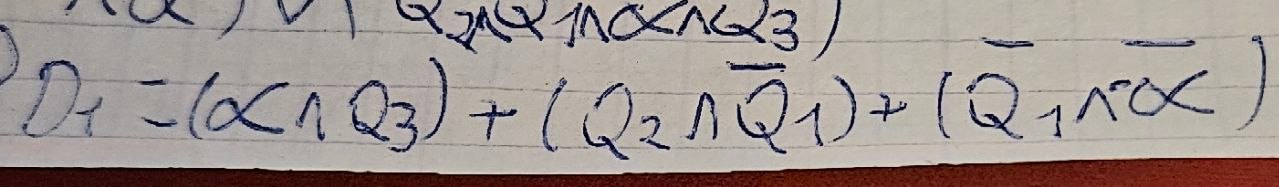 Q₂∧Q₁∧α∧Q₃)
D₁ = (α∧Q₃) + (Q₂∧Q̅₁) + (Q̅₁∧α̅)